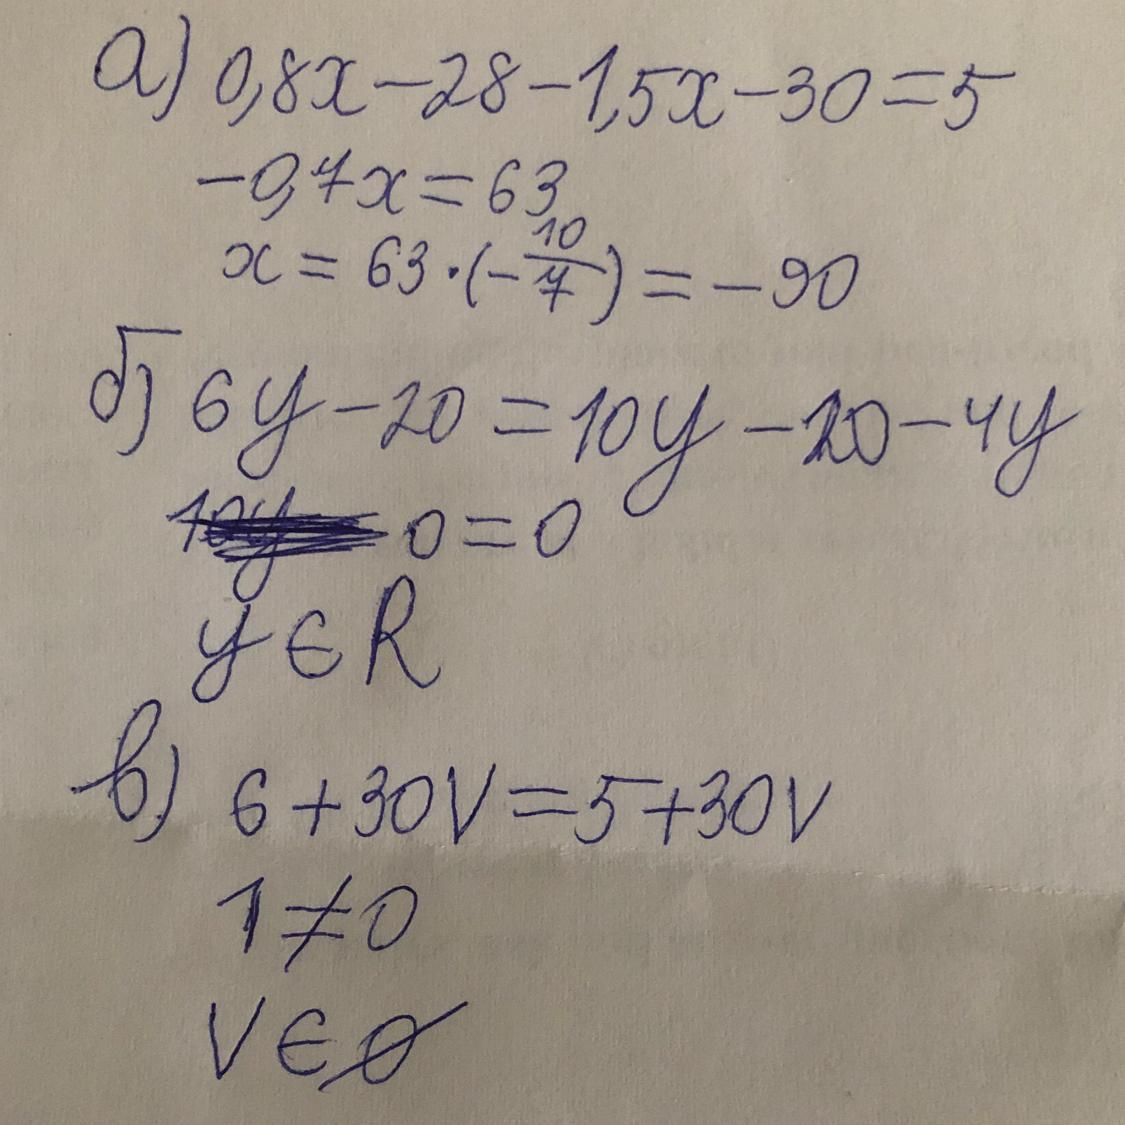 а) 0,8x-28-1,5x-30=5
-0,7x=63
x = 63·(-10/7) = -90
б) 6y-20=10y-20-4y
0=0
y∈R
в) 6+30V=5+30V
1≠0
V∈∅